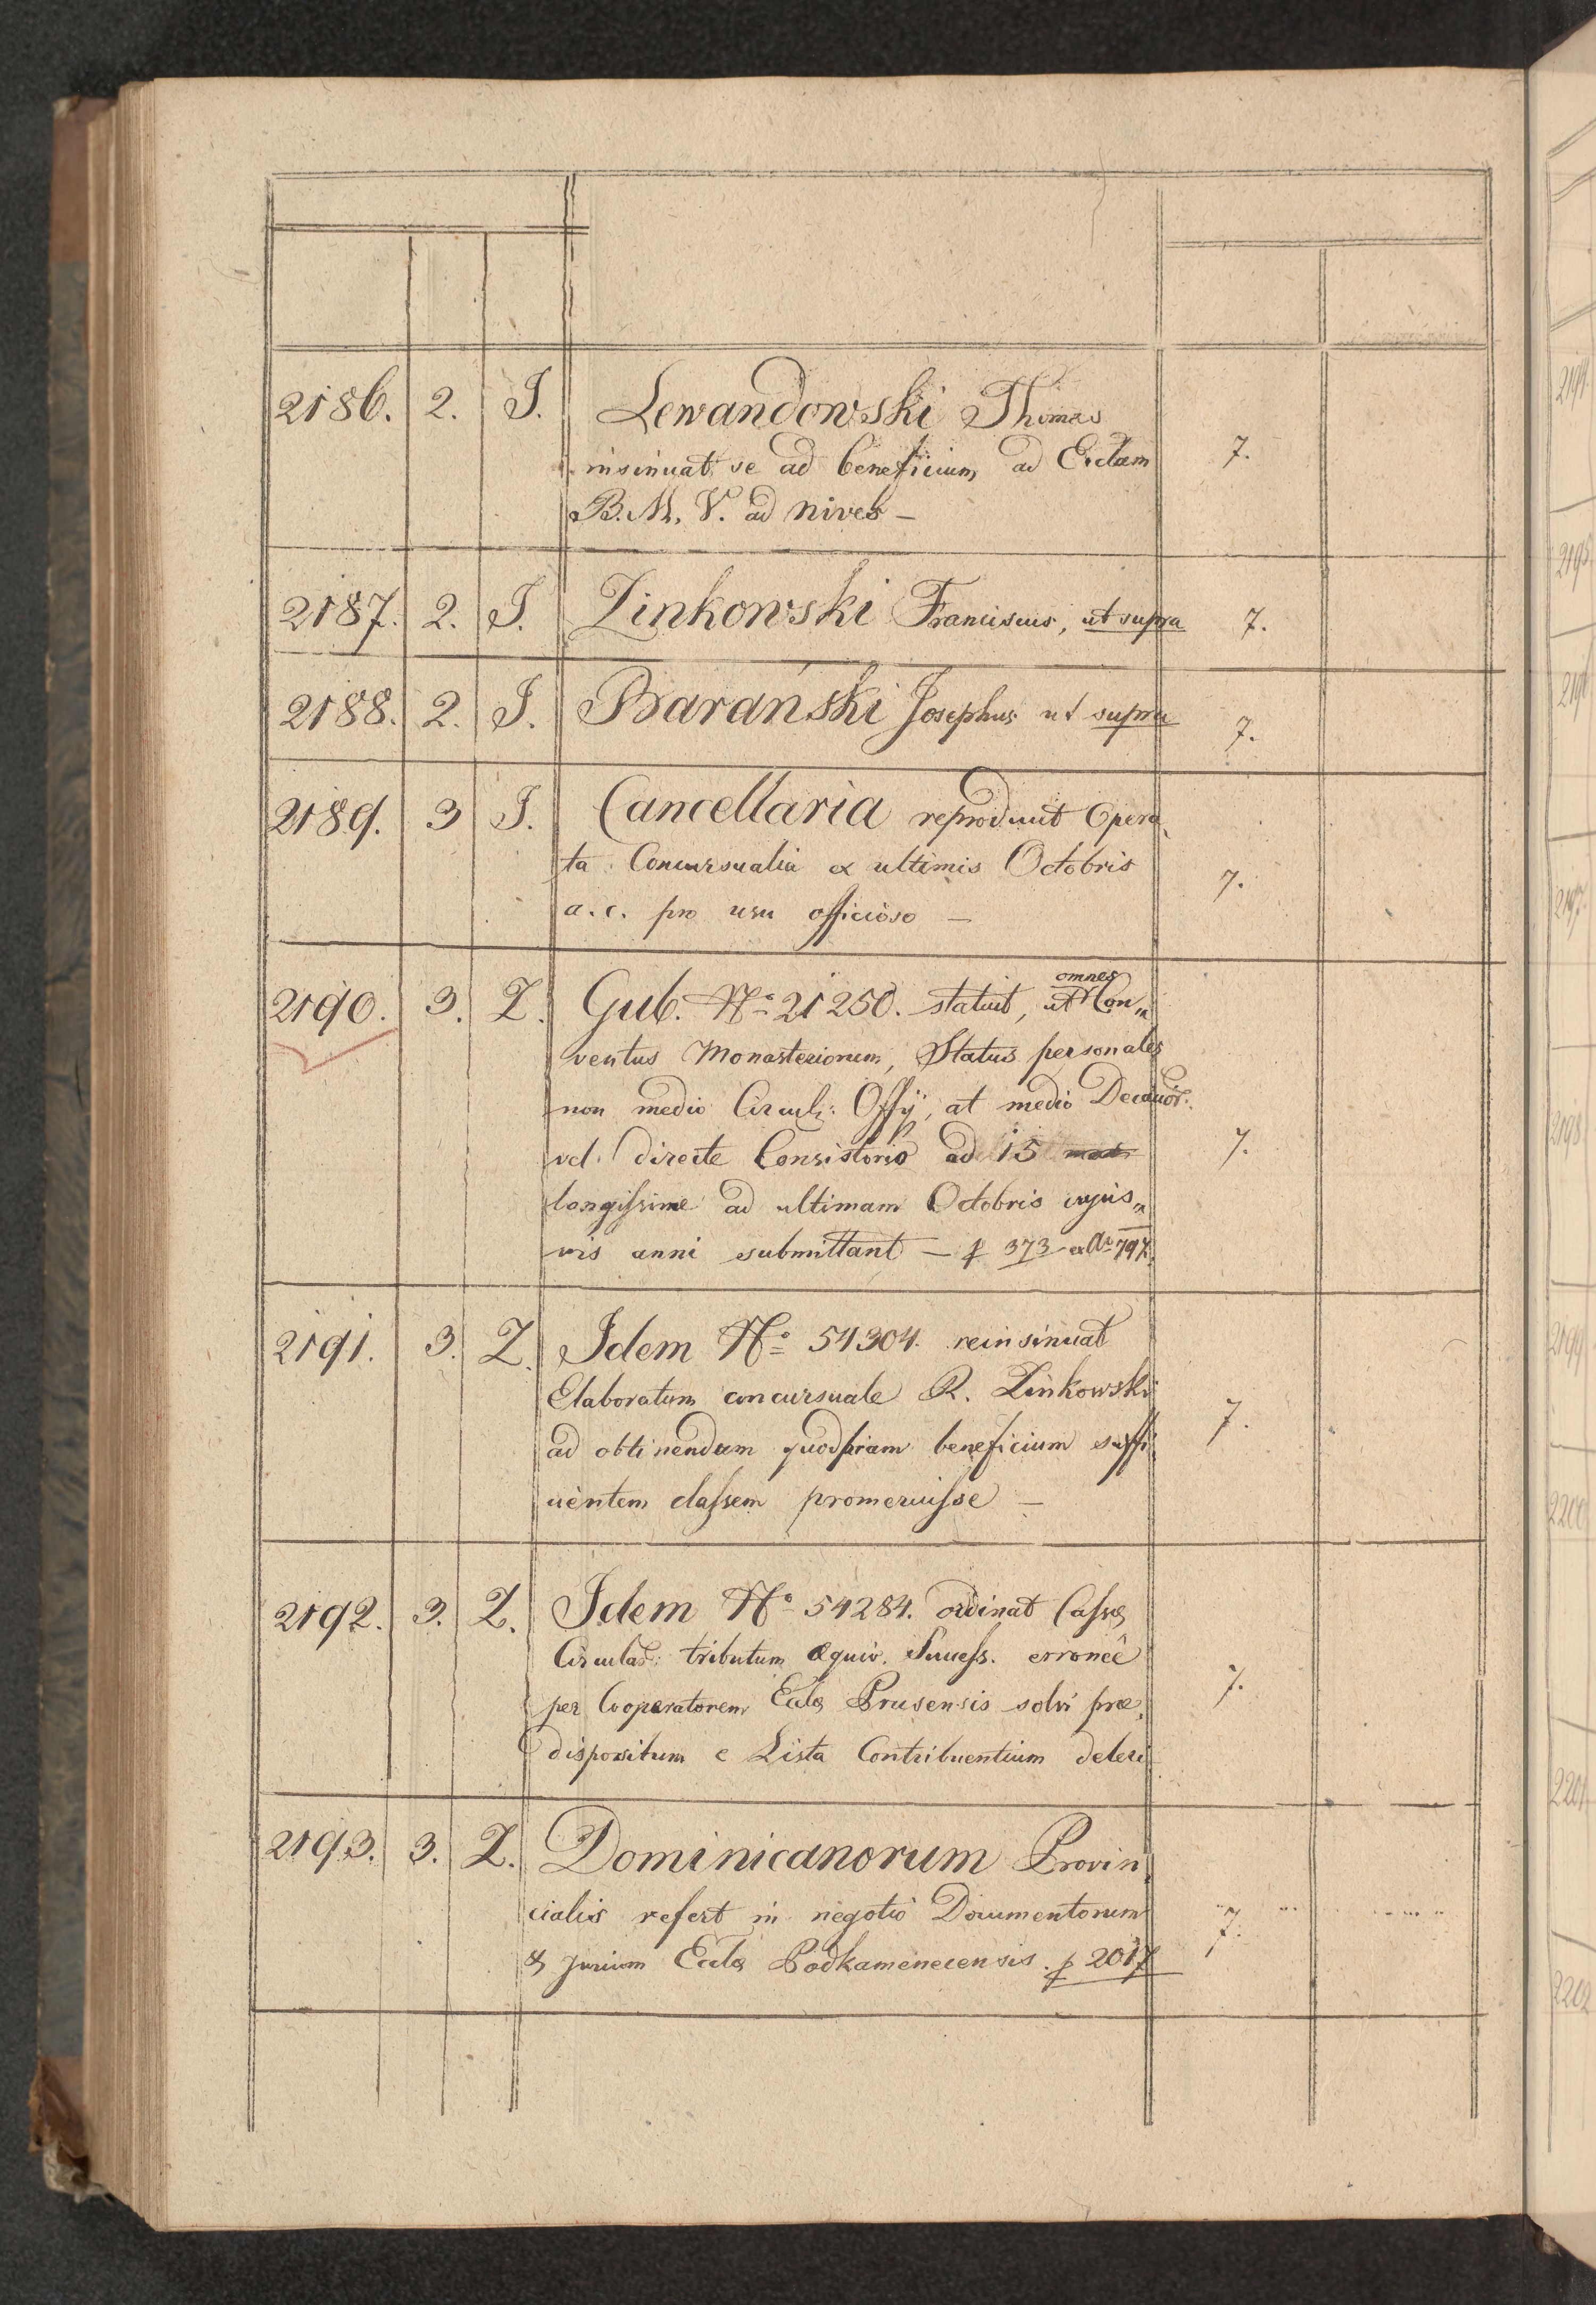 2186. 2. J. Lewandowski Thomas
insinuat se ad beneficium ad Ecclam 7.
B. M. V. ad nives —
2187. 2. J. Zinkowski Franciscus, ut supra 7.
2188. 2. J. Barański Josephus ut supra 7.
2189. 3 J. Cancellaria reproducit Opera,
ta Concursualia ex ultimis Octobris 7.
a. c. pro usu officioso —
omnes
2190. 3. Z. Gub. No 21250. statuit, ut Con„
ventus Monasteriorum, Status personales
non medio Circul: Offÿ, at medio Decanor.
vel directe Consistorio ad 15 7.
longissime ad ultimam Octobris cujus„
vis anni submittant — 373 ex Ao 797.
2191. 3. Z. Idem No 54304. reinsinuat
Elaboratum concursuale R. Zinkowski
ad obtinendum quodpiam beneficium suffi, 7.
cientem classem promeruisse —
2192. 3. Z. Idem No 54284. ordinat Cassæ
Circular: tributum æquiv. Success. erroneè
per Cooperatorem Eccles Prusensis solvi præ, 7.
dispositum e Lista Contribuentium deleri
2193. 3. Z. Dominicanorum Provin,
cialis refert in negotio Documentorum 7.
& Jurium Eccles Podkamenecensis. 2017